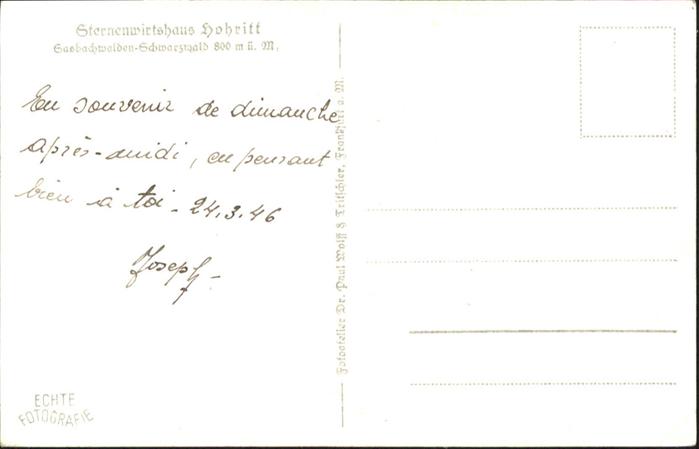 Sternenwirtshaus Hohritt
Sasbachwalden-Schwarzwald 800 m ü. M.
En souvenir de dimanche
après-midi, en pensant
bien à toi - 24.3.46
Joseph
Fotoatelier Dr. Paul Wolff & Tritschler, Frankfurt a. M.
ECHTE
FOTOGRAFIE